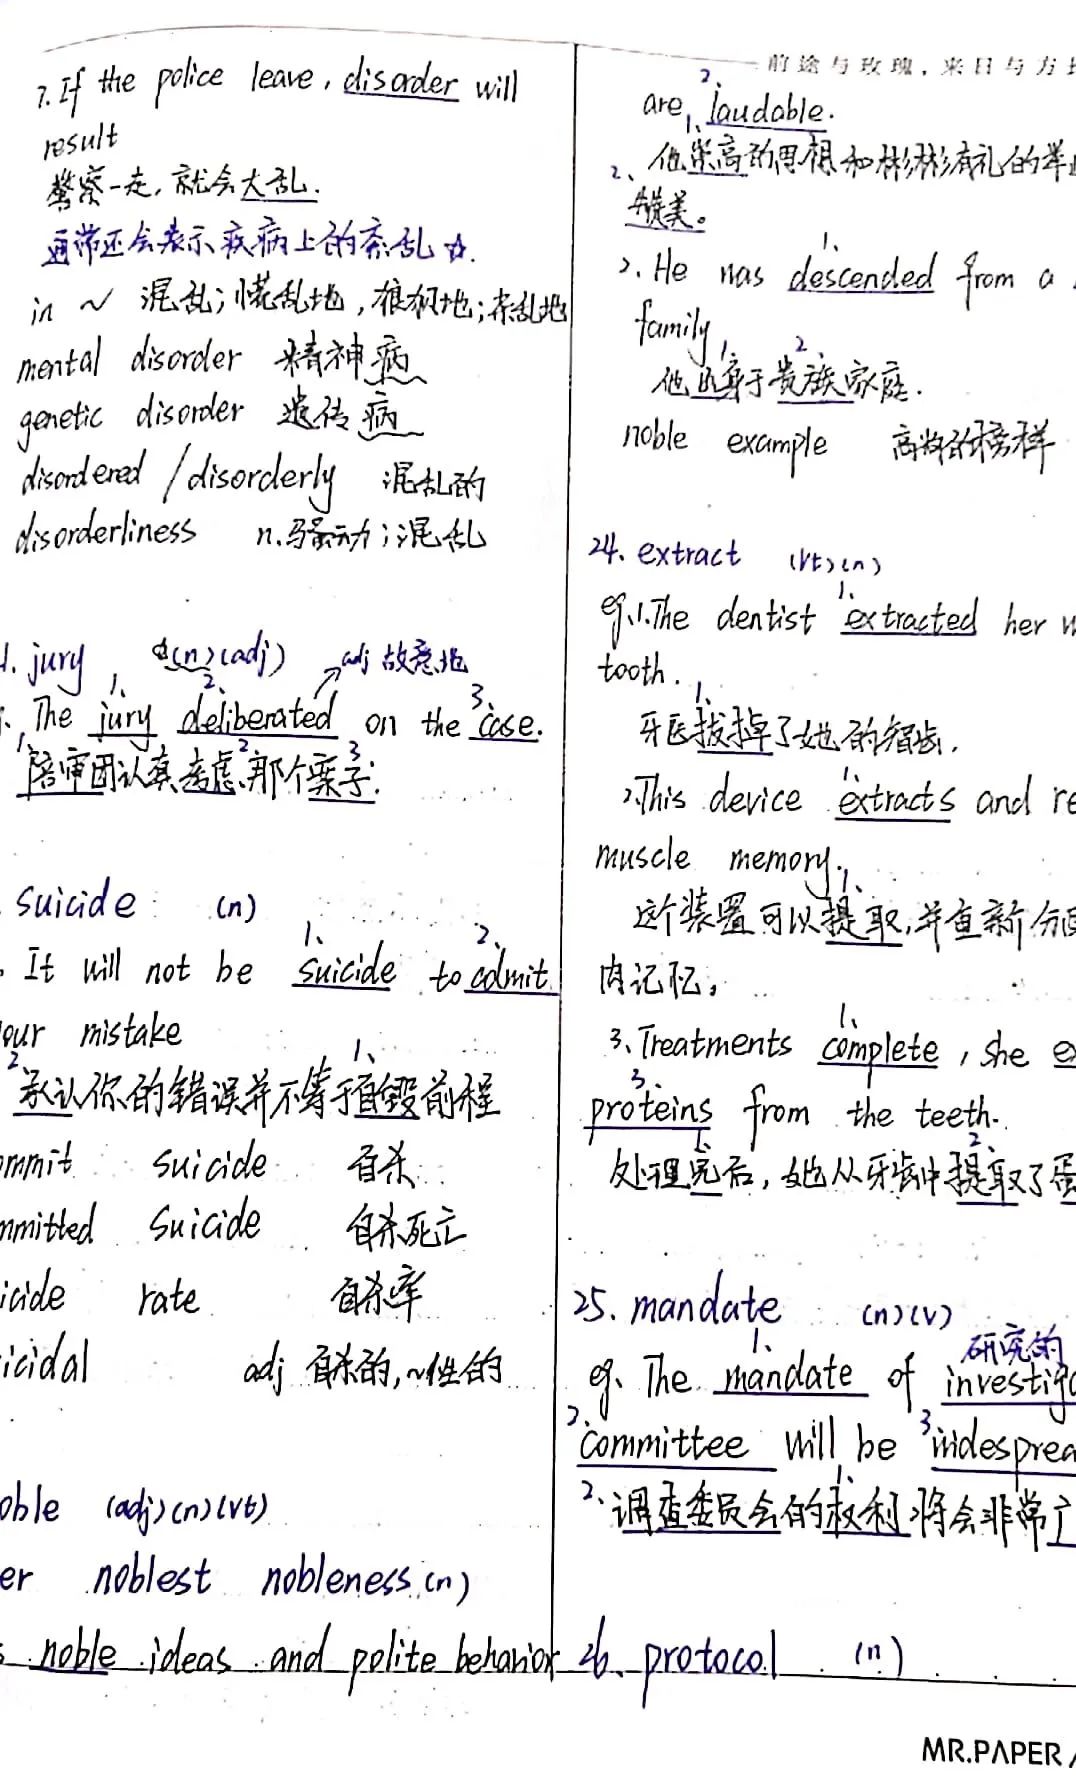 前途与玫瑰，来日与方
7. If the police leave, disorder will
result
警察一走，就会大乱.
通常还会表示疾病上的紊乱☆.
in ~ 混乱；慌乱地，狼狈地；杂乱地
mental disorder 精神病
genetic disorder 遗传病
disordered / disorderly 混乱的
disorderliness n.骚动；混乱
jury (n)(adj) adj 故意地
1、 2、 3、
The jury deliberated on the case.
1 2 3
陪审团认真考虑那个案子.
suicide (n)
1、 2、
It will not be suicide to admit
our mistake
2、 1、
承认你的错误并不等于自毁前程
mmit suicide 自杀
mmitted suicide 自杀死亡
icide rate 自杀率
icidal adj 自杀的,~性的
oble (adj)(n)(vt)
er noblest nobleness (n)
noble ideas and polite behavior
2、
are laudable.
1、
2、他崇高的思想和彬彬有礼的举
赞美。
1、
2. He was descended from a
family
1、 2、
他出身于贵族家庭.
noble example 高尚的榜样
24. extract (vt)(n)
1、
eg.1.The dentist extracted her
tooth.
1、
牙医拔掉了她的智齿.
1、
2.This device extracts and re
muscle memory.
1、
这个装置可以提取,并重新分
肉记忆。
1、
3.Treatments complete, she e
3、
proteins from the teeth.
1、 2、
处理完后，她从牙齿中提取了
25. mandate (n)(v)
1、 研究的
eg. The mandate of investiga
2、 3
committee will be widesprea
2、 1、
调查委员会的权利将会非常广
26. protocol (n)
MR.PAPER